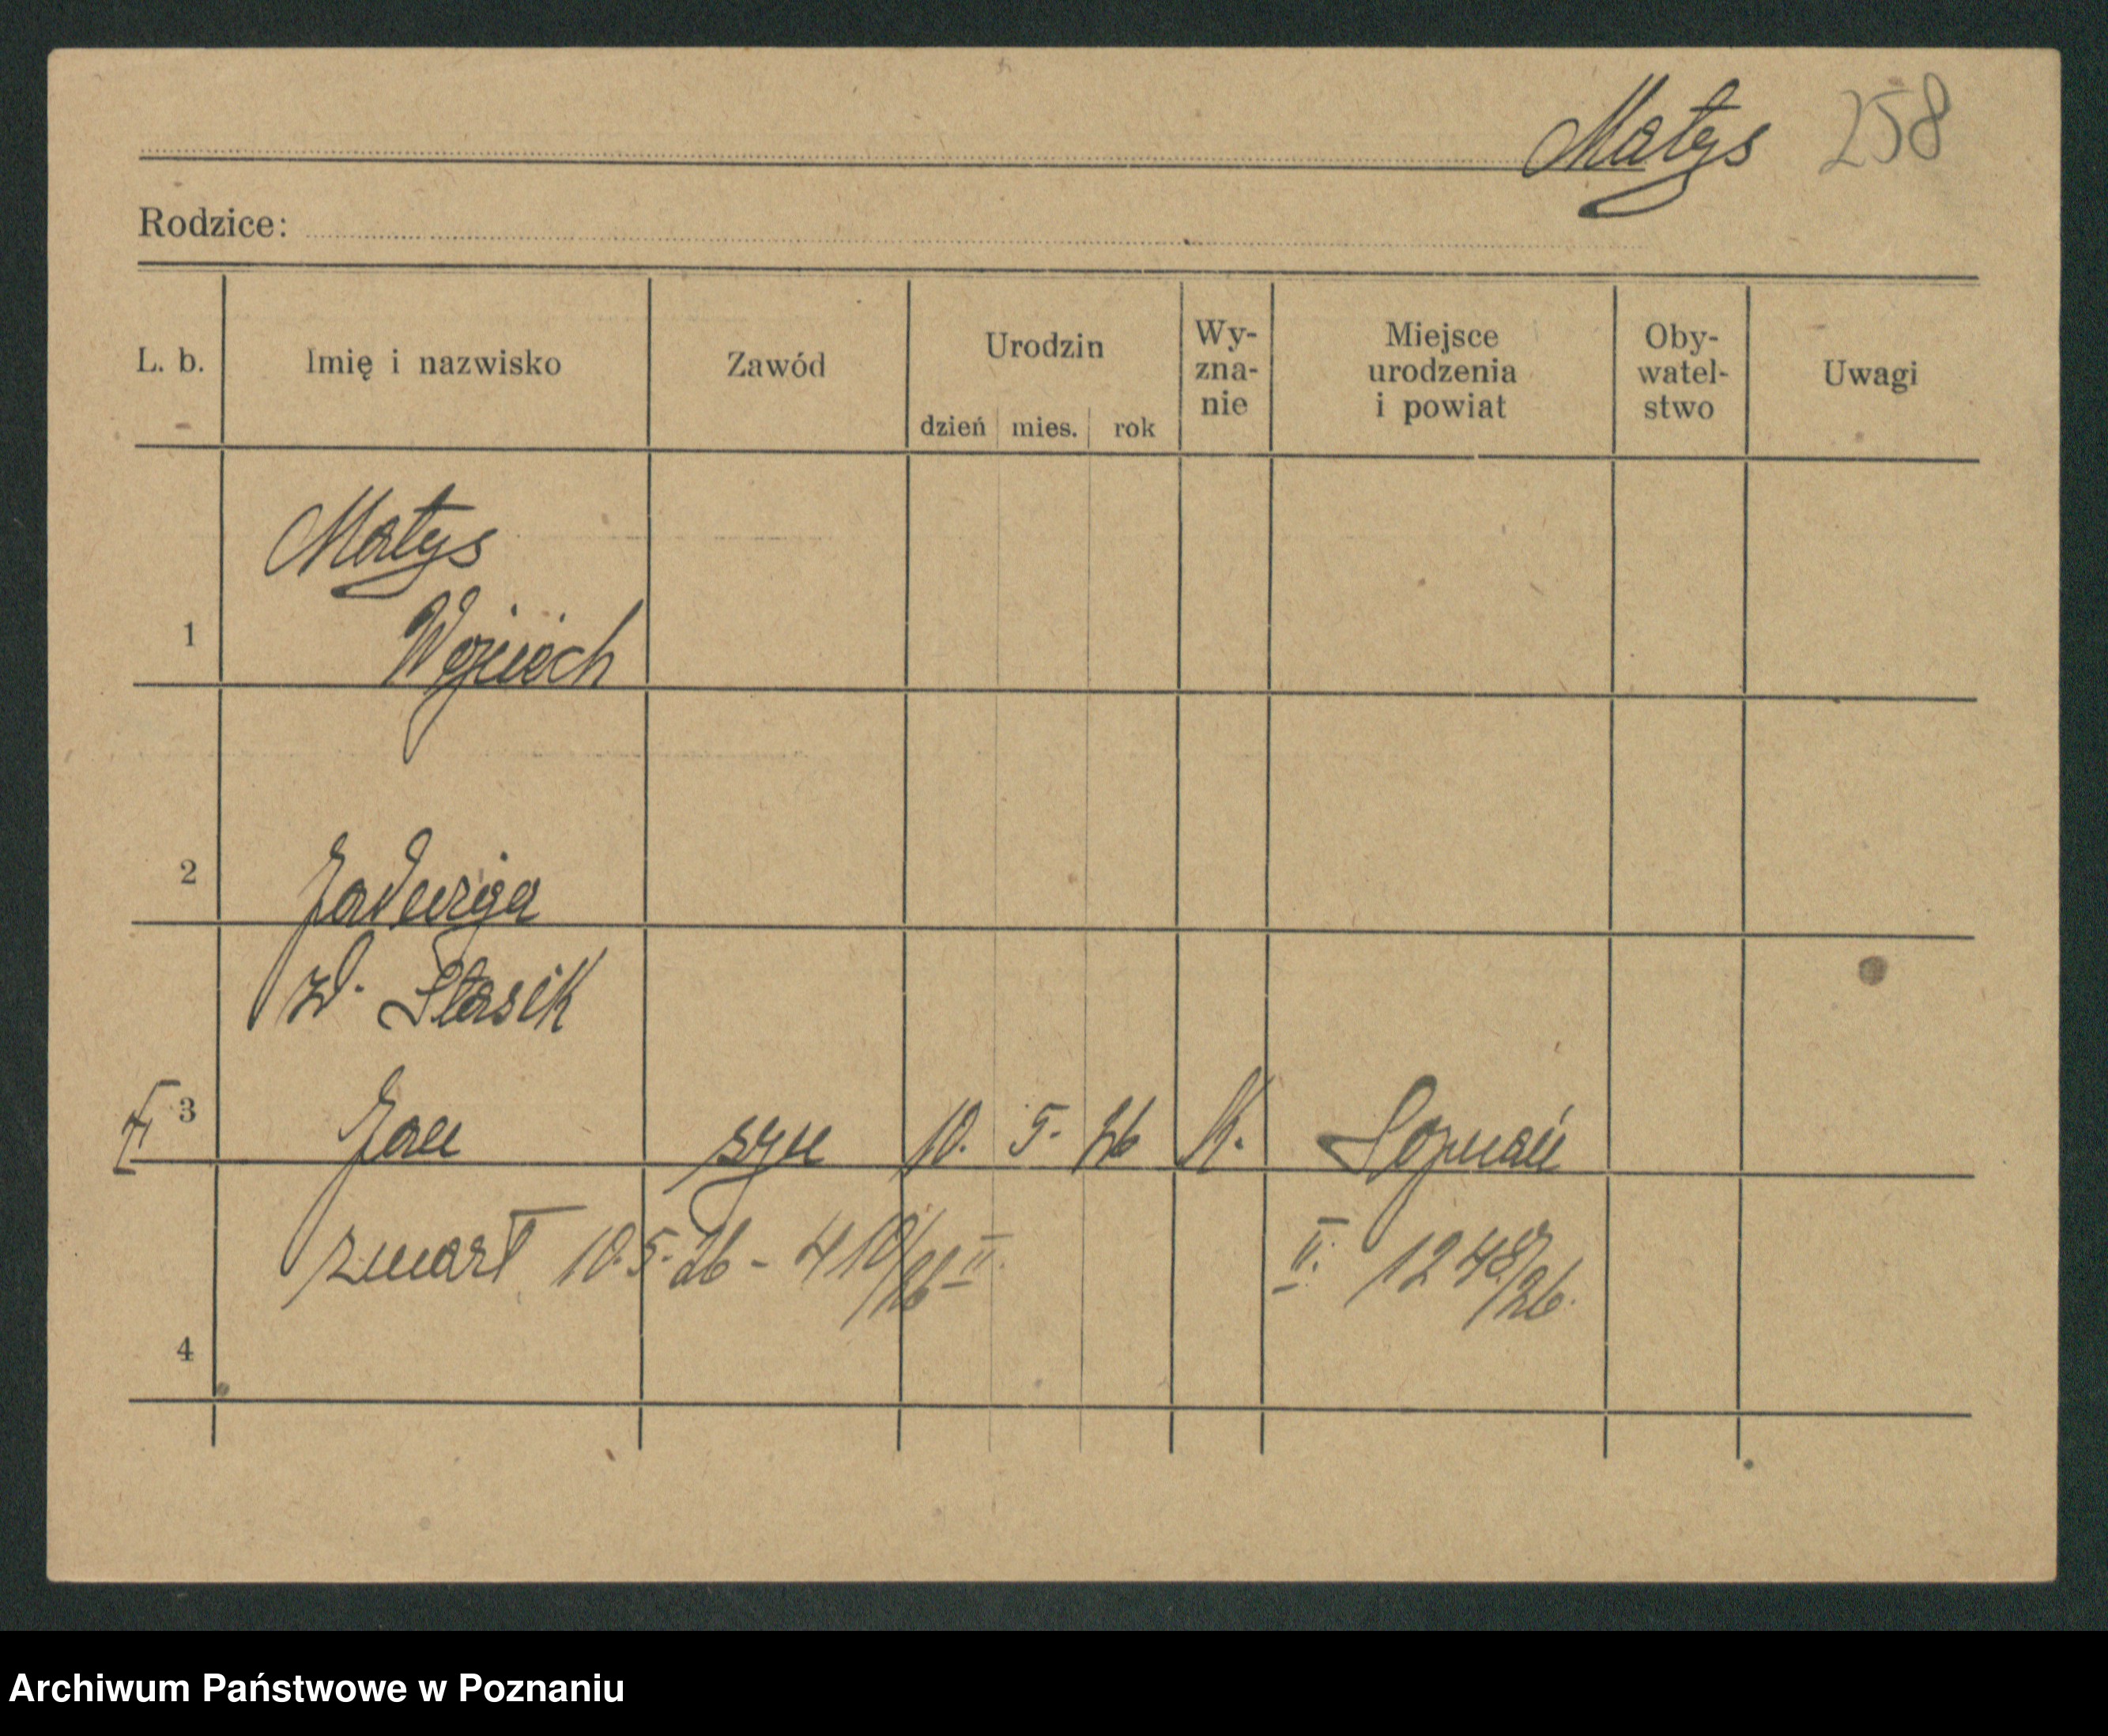 Matys 258
Rodzice:
L. b. Imię i nazwisko Zawód Urodzin dzień mies. rok Wy-zna-nie Miejsce urodzenia i powiat Oby-watel-stwo Uwagi
Matys
1 Wojciech
2 Jadwiga
zd. Stasik
3 Jan syn 10. 5. 26 k. Poznań
zmarł 10.5.26 - 410/26 II. II. 1248/26.
4
Archiwum Państwowe w Poznaniu